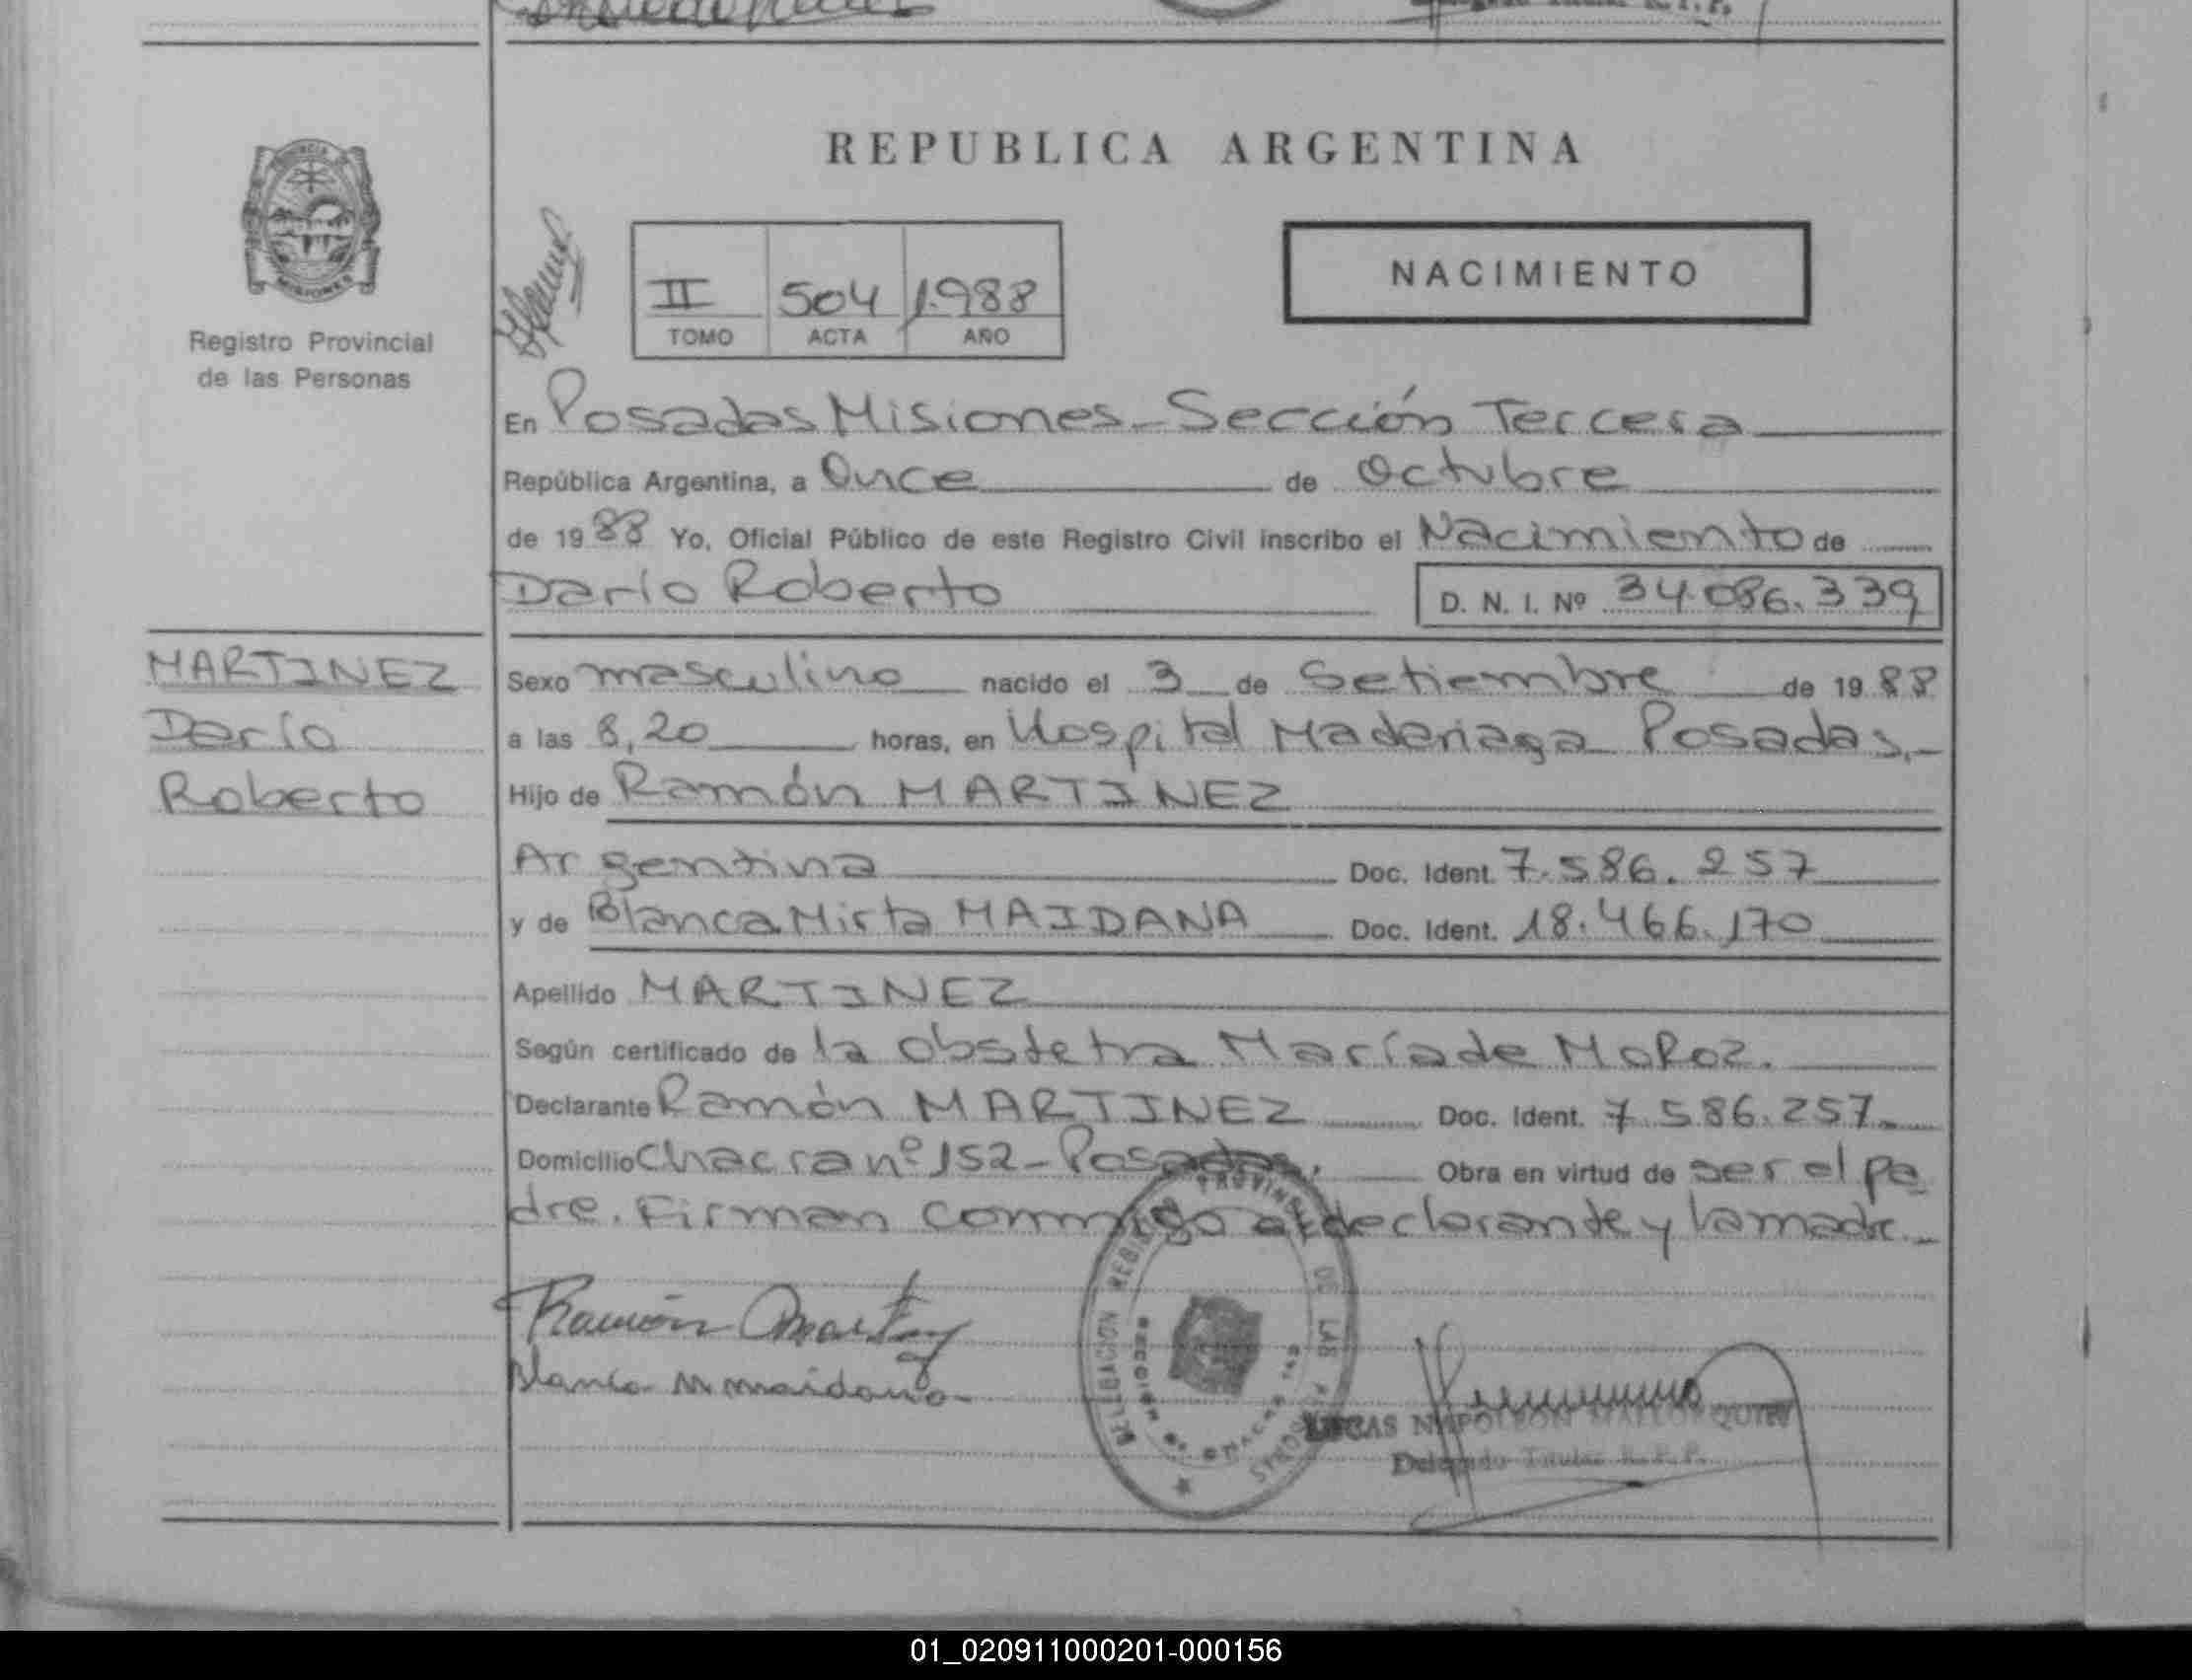 REPUBLICA ARGENTINA
PROVINCIA
MISIONES
Registro Provincial
de las Personas
II 504 1.988
TOMO ACTA AÑO
NACIMIENTO
En Posadas Misiones - Sección Tercera
República Argentina, a Once de Octubre
de 1988 Yo, Oficial Público de este Registro Civil inscribo el Nacimiento de
Darío Roberto D. N. I. Nº 34.086.339
MARTINEZ
Darío
Roberto
Sexo masculino nacido el 3 de Setiembre de 1988
a las 8,20 horas, en Hospital Madariaga Posadas.-
Hijo de Ramón MARTINEZ
Argentina Doc. Ident. 7.586.257
y de Blanca Mirta MAIDANA Doc. Ident. 18.466.170
Apellido MARTINEZ
Según certificado de la obstetra María de MoRoz.
Declarante Ramón MARTINEZ Doc. Ident. 7.586.257.-
Domicilio Chacra nº 152 - Posadas. Obra en virtud de ser el pa
dre. Firman conmigo el declarante y la madre.-
Ramón Martinez
Blanca M maidana
DELEGACION REGISTRO PROVINCIAL DE LAS PERSONAS
LUCAS NAPOLEON MALLORQUIN
Delegado Titular R.P.P.
01_020911000201-000156